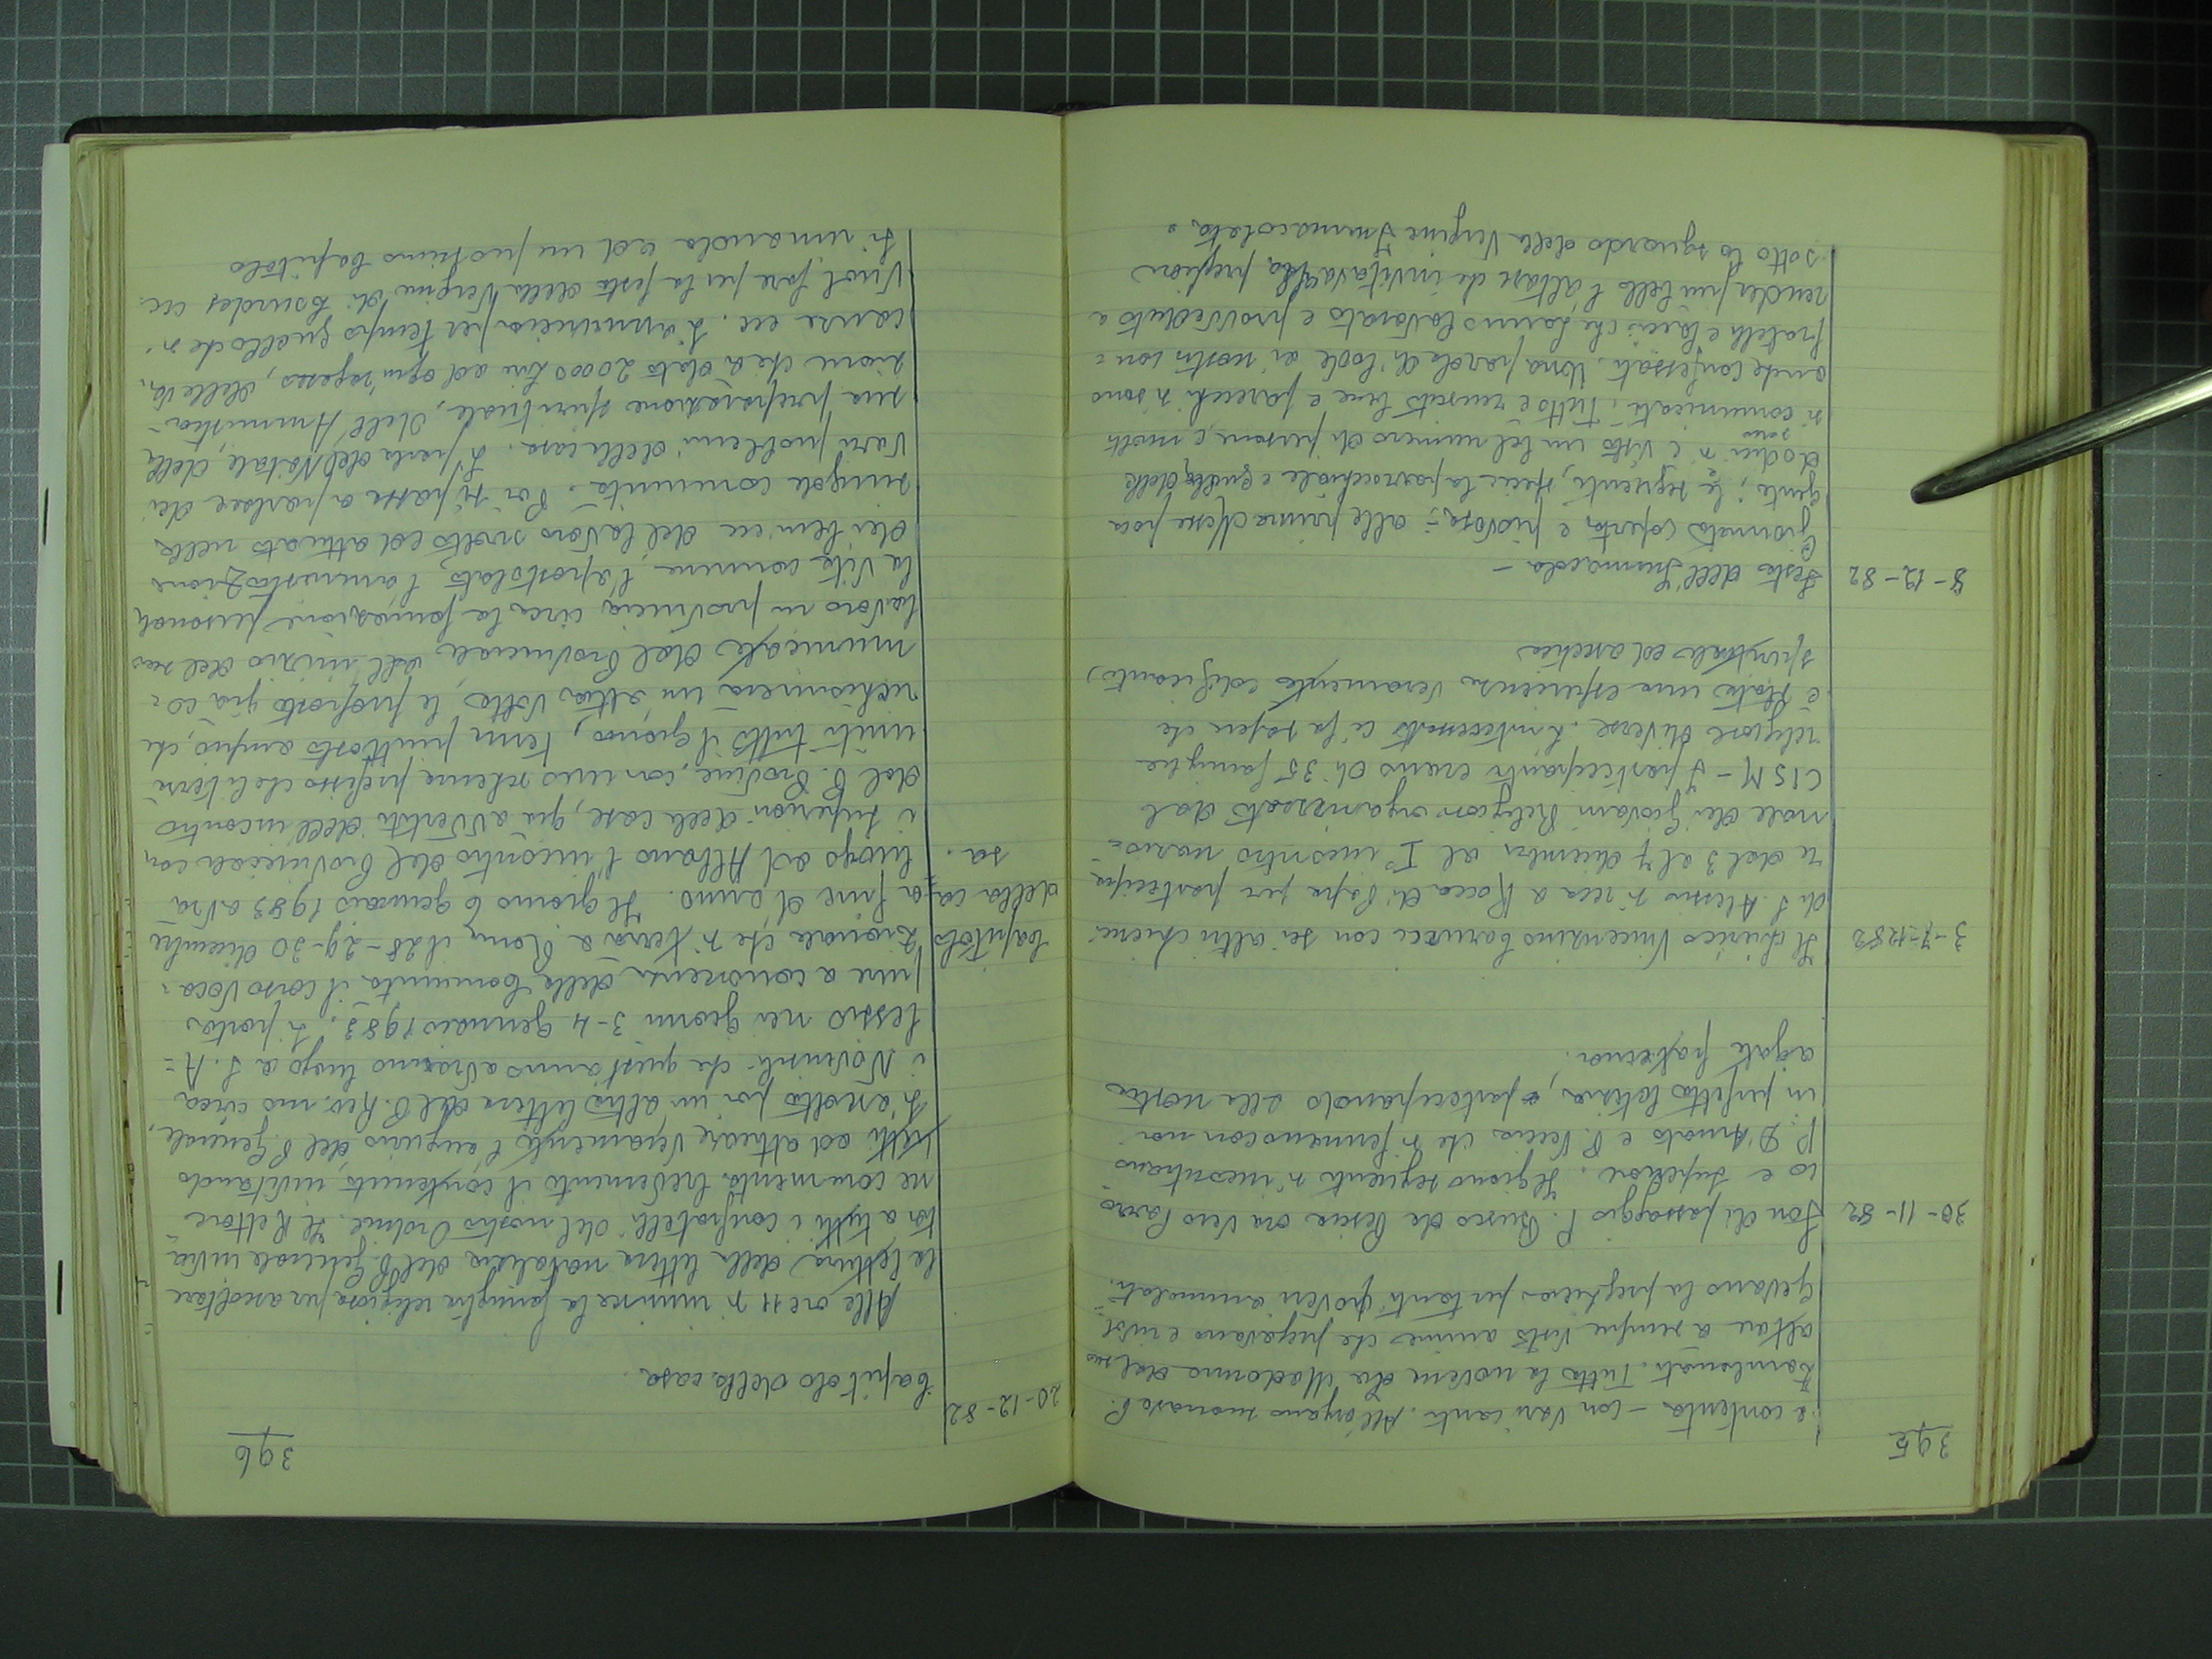 395
e contenta - con vari canti. All'organo suonava P.
Tarolomati. Tutta la novena da Madonna dal suo
altare a sempre visto anime che pregavano e invol
gevano la preghiera per tanti poveri ammalati.
30-11-82 Son di passaggio P. Busco da Pescia ora Vice Parro
co e Superiore. Il giorno seguente s'incontrano
P. D'Amato e P. Veccia che si fermano con noi
in perfetta letizia, partecipando alla nostra
agape fraterna.
3-7-12-82 Il chierico Vincenzino Carucci con sei altri chieri
di S. Alessio si reca a Rocca di Papa per partecipa
re dal 3 al 7 dicembre al I° incontro nazio=
nale dei Giovani Religiosi organizzato dal
CISM - I partecipanti erano di 35 famiglie
religiose diverse. L'interessato ci fa sapere che
è stata una esperienza veramente edificante,
spirituale ed ascetica
8-12-82 Festa dell'Immacola -
Giornata coperta e piovosa: alle prime Messe poca
gente; le seguenti, specie la parrocchiale e quella delle
dodici si è visto un bel numero di persone, e molti
sono
si comunicati. Tutto è riuscito bene e parecchi si sono
anche confessati. Una parola di lode ai nostri con=
fratelli e laici che hanno lavorato e provveduto a
render più bello l'altare che invitava alla preghiera
sotto lo sguardo della Vergine Immacolata.
396
20-12-82 Capitolo della casa
Alle ore 11 si riunisce la famiglia religiosa per ascoltare
la lettura della lettera natalizia del P. Generale invia
ta a tutti i confratelli del nostro Ordine. Il Rettore
ne commenta brevemente il contenuto invitando
tutti ad attuare veramente l'augurio del P. Generale,
S'ascolta poi un'altra lettera del P. Rev.mo circa
i Novensili che quest'anno avranno luogo a S. A=
lessio nei giorni 3-4 gennaio 1983. Si porta
pure a conoscenza della Comunità il corso voca=
Capitolo zionale che si terrà a Roma il 28-29-30 dicembre
della ca a fine d'anno. Il giorno 6 gennaio 1983 avrà
sa. luogo ad Albano l'incontro del Provinciale con
i Superiori delle case, già avvertiti dell'incontro
dal P. Provinc. con uno schema prefisso che li terrà
uniti tutto il giorno, tema piuttosto ampio, che
richiamerà un'altra volta, le proposte già co=
municate dal Provinciale all'inizio del suo
lavoro in provincia circa la formazione personale,
la vita comune, l'apostolato, l'amministrazione
dei beni ecc del lavoro svolto ed attuato nella
singola comunità. Poi si passa a parlare dei
vari problemi della casa. Si parla del Natale, della
sua preparazione spirituale, dell'Amministra=
zione che à dato 20000 lire ad ogni religioso, delle va
canze ecc. Si annuncia per tempo quello che si
vuol fare per la festa della Vergine di Lourdes ecc.
Si rimanda ad un prossimo Capitolo